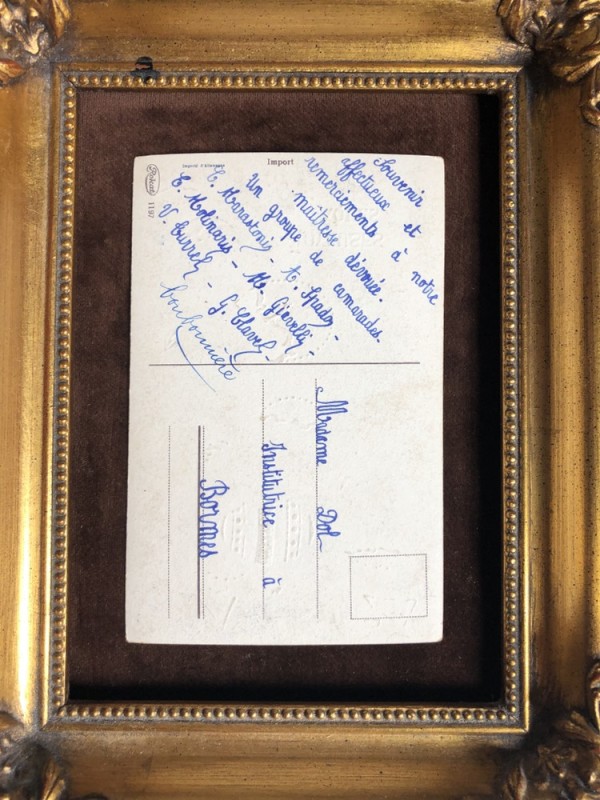 Souvenir
affectueux et
remerciements à notre
maîtresse dévouée.
Un groupe de camarades.
Marastoni - Spada -
Molinari - M. Giovelli -
V. - G. Clavel -
Import
Madame Dol
Institutrice à
Bormes